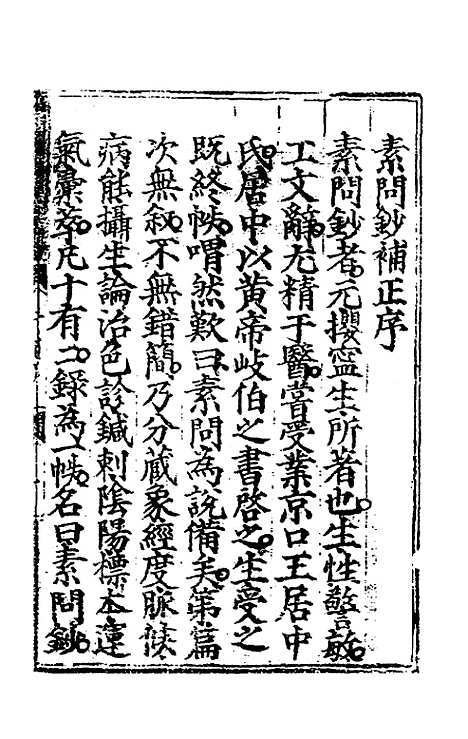 素問鈔補正序
素問鈔者元攖寧生所著也生性警敏
工文辭尤精于醫嘗受業京口王居中
氏居中以黃帝岐伯之書啓之生受之
既終帙喟然歎曰素問為說備矣第篇
次無叙不無錯簡乃分藏象經度脉候
病能攝生論治色診鍼刺陰陽標本運
氣彙萃凡十有二錄為一帙名曰素問鈔